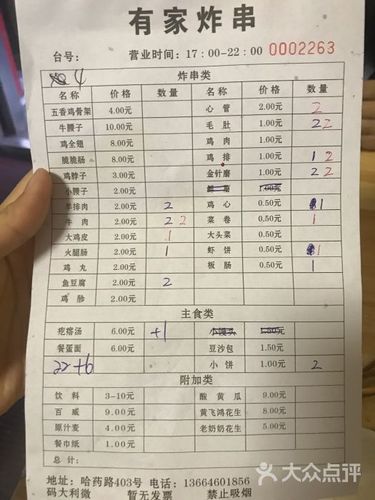 有家炸串
台号: 营业时间:17:00-22:00 0002263
4 炸串类
名称 价格 数量 名称 价格 数量
五香鸡骨架 4.00元 心管 1.00元 2
牛腰子 10.00元 毛肚 1.00元 2 2
鸡全翅 8.00元 鸡肉 1.00元
脆脆肠 8.00元 鸡排 1.00元 1 2
鸡脖子 3.00元 金针蘑 1.00元 2 2
小腰子 2.00元 1.00元
羊排肉 2.00元 2 鸡心 0.50元 1
牛肉 2.00元 2 2 菜卷 0.50元 1
大鸡皮 2.00元 1 大头菜 0.50元
火腿肠 2.00元 1 虾饼 0.50元 1
鸡丸 2.00元 板肠 0.50元 1
鱼豆腐 2.00元 2
鸡胗 2.00元
主食类
疙瘩汤 6.00元 +1
餐蛋面 6.00元 豆沙包 1.50元
22+6 小饼 1.00元 2
附加类
饮料 3-10元 酸黄瓜 9.00元
百威 9.00元 黄飞鸿花生 8.00元
原汁麦 4.00元 老奶奶花生 5.00元
餐巾纸 1.00元
总计:
地址:哈药路403号 电话:13664601856
码大利微 暂无发票 禁止吸烟
大众点评